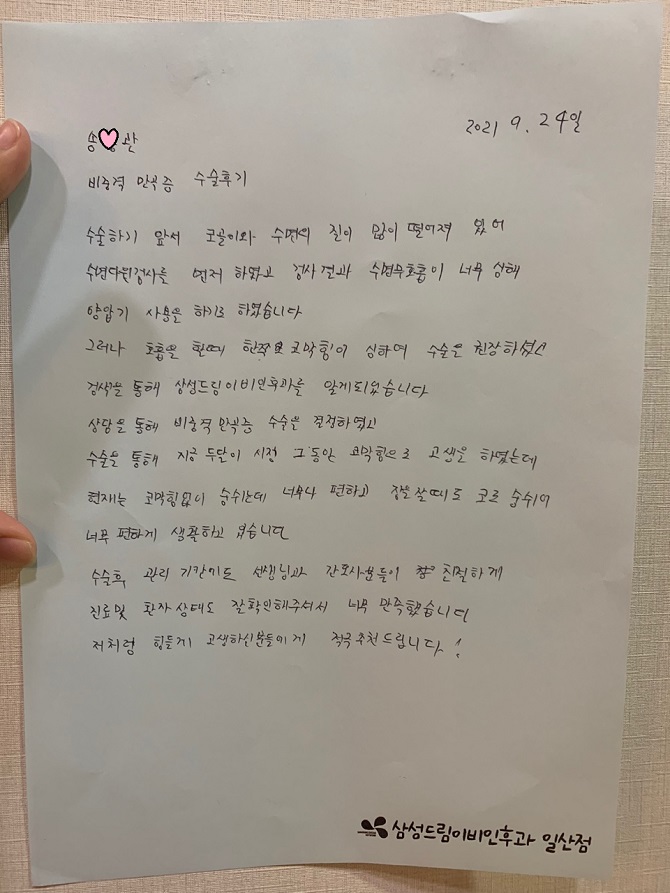 2021 9. 24일
송 관
비중격 만곡증 수술후기
수술하기 앞서 코골이와 수면의 질이 많이 떨어져 있어
수면다원검사를 먼저 하였고 검사결과 수면무호흡이 너무 심해
양압기 사용을 하기로 하였습니다
그러나 호흡을 할때 한쪽 코막힘이 심하여 수술을 권장하셨고
검색을 통해 삼성드림이비인후과를 알게되었습니다
상담을 통해 비중격 만곡증 수술을 결정하였고
수술을 통해 지금 두달이 시점 그동안 코막힘으로 고생을 하였는데
현재는 코막힘없이 숨쉬는데 너무나 편하고 잠을 잘때도 코로 숨쉬어
너무 편하게 생활하고 있습니다
수술후 관리 기간에도 선생님과 간호사분들이 친절하게
진료및 환자상태도 잘확인해주셔서 너무 만족했습니다
저처럼 힘들게 고생하신분들에게 적극추천드립니다 !
삼성드림이비인후과 일산점